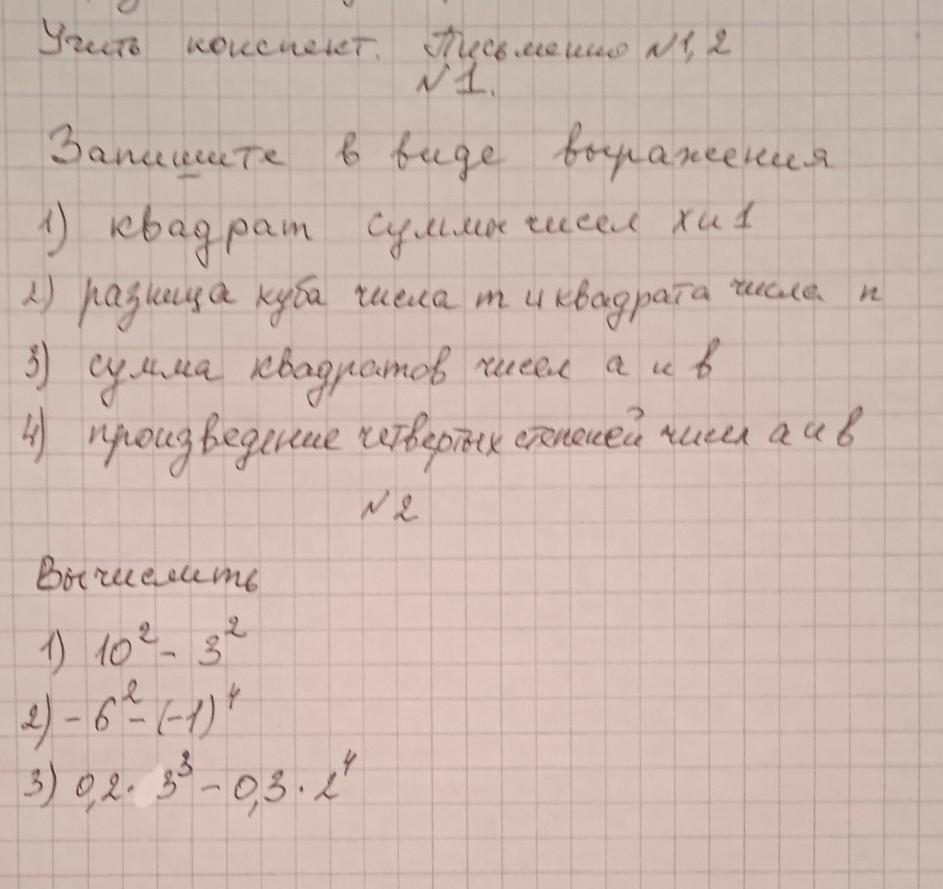 Учить конспект. Письменно №1, 2
№1.
Запишите в виде выражения
1) квадрат суммы чисел x и 1
2) разница куба числа m и квадрата числа n
3) сумма квадратов чисел a и b
4) произведение четвертых степеней чисел a и b
№2
Вычислить
1) 10² - 3²
2) - 6² - (-1)⁴
3) 0,2 · 3³ - 0,3 · 2⁴